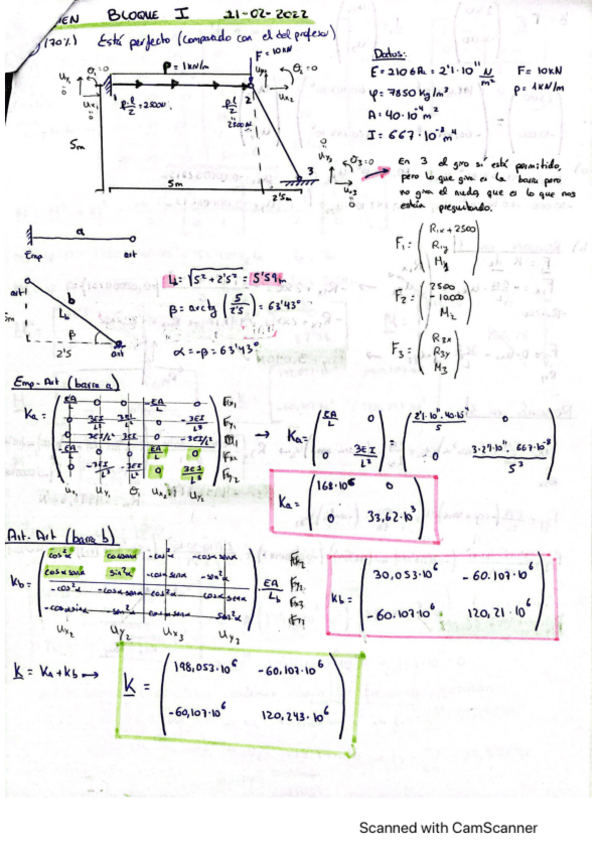 EN BLOQUE I 21-02-2022
(70%) Está perfecto (comparado con el del profesor)
F=10KN
P=1KN/m
θ1=0
P·l/2=2500N
P·l/2
2500N
1
2
3
5m
5m
2'5m
Ux3
Uy3
θ3=0
Datos:
E=210GPa=2'1·10^11 N/m²
F=10KN
φ=7850 kg/m³
P=1KN/m
A=40·10^-4 m²
I=667·10^-8 m^4
En 3 el giro sí está permitido,
pero lo que gira es la barra pero
no gira el nudo, que es lo que nos
están preguntando.
F1 = (R1x+2500
R1y
M1)
F2 = (2500
-10.000
M2)
F3 = (R3x
R3y
M3)
a
Emp art
art
b
Lb
β
5m
2'5
art
L = √(5²+2'5²) = 5'59m
β = arctg (5/2'5) = 63'43°
α = -β = 63'43°
Emp-Art (barra a)
Ka = (EA/L 0 0 -EA/L 0
0 3EI/L³ 3EI/L² 0 -3EI/L³
0 3EI/L² 3EI/L 0 -3EI/L²
-EA/L 0 0 EA/L 0
0 -3EI/L³ -3EI/L² 0 3EI/L³)
Ux1 Uy1 θ1 Ux2 Uy2
→ Ka = (EA/L 0
0 3EI/L³) = (2'1·10^11·40·10^-4/5 0
0 3·2'1·10^11·667·10^-8/5³)
Ka = (168·10^6 0
0 33,62·10^3)
Art-Art (barra b)
Kb = (cos²α cosαsenα -cos²α -cosαsenα
cosαsenα sin²α -cosαsenα -sen²α
-cos²α -cosαsenα cos²α cosαsenα
-cosαsenα -sen²α cosαsenα sen²α) · EA/Lb
Fx2
Fy2
Fx3
Fy3
Ux2 Uy2 Ux3 Uy3
Kb = (30,053·10^6 -60.107·10^6
-60.107·10^6 120,21·10^6)
K = Ka+Kb → K = (198,053·10^6 -60,107·10^6
-60,107·10^6 120,243·10^6)
Scanned with CamScanner